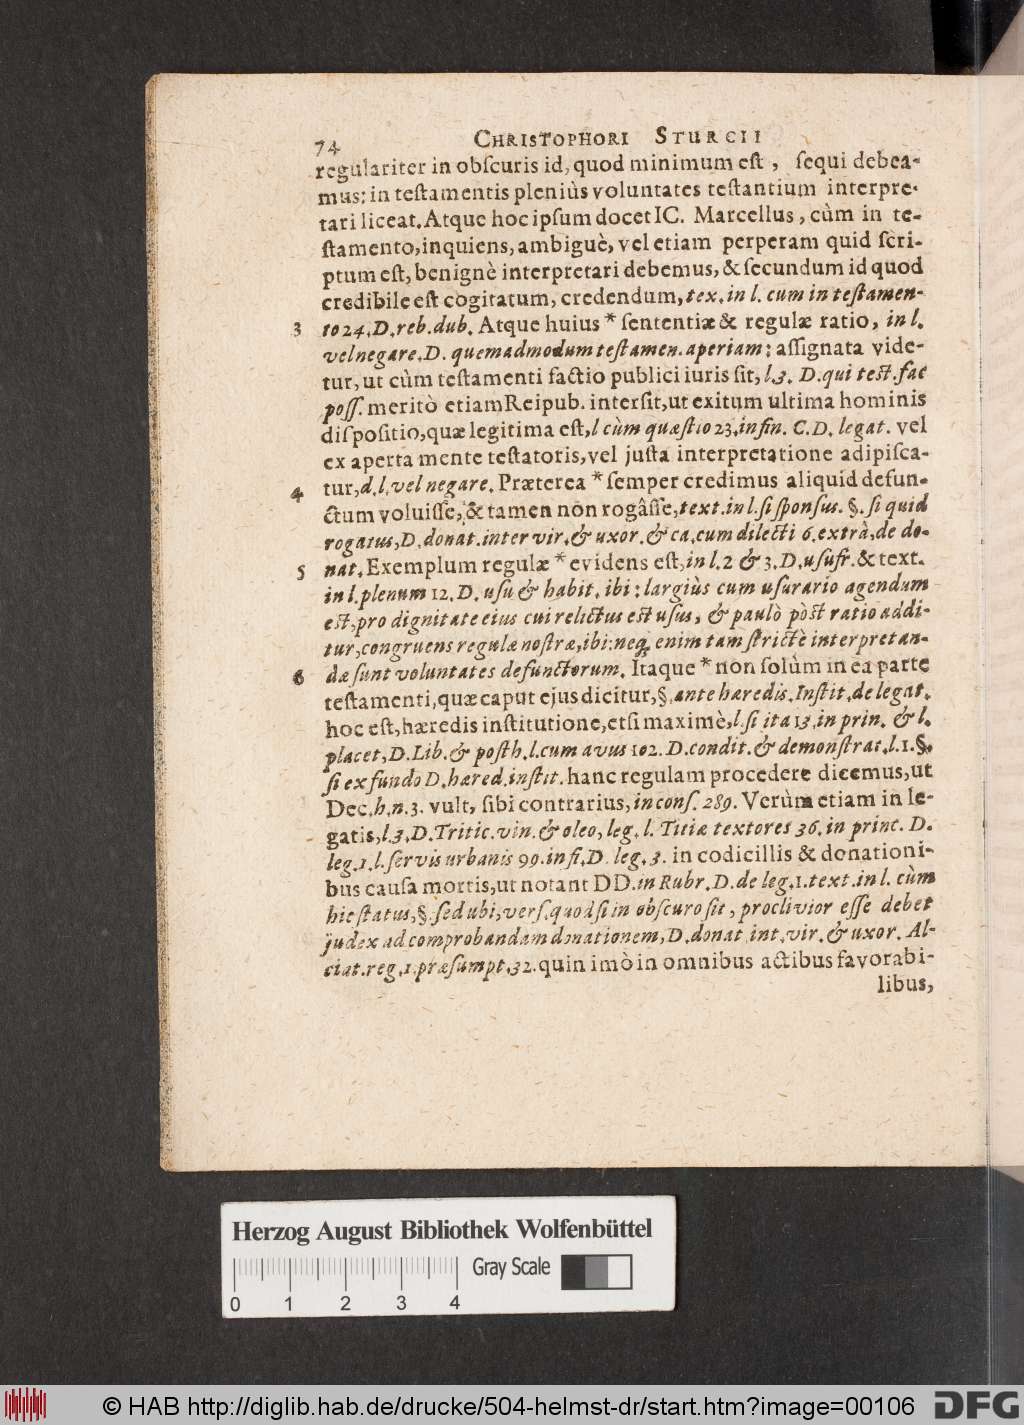 74 CHRISTOPHORI STURCII
regulariter in obſcuris id, quod minimum eſt, ſequi debea-
mus: in teſtamentis pleniùs voluntates teſtantium interpre-
tari liceat. Atque hoc ipſum docet IC. Marcellus, cùm in te-
ſtamento, inquiens, ambiguè, vel etiam perperam quid ſcri-
ptum eſt, benignè interpretari debemus, & ſecundum id quod
credibile eſt cogitatum, credendum, tex. in l. cum in teſtamen-
3 to 24. D. reb. dub. Atque huius * ſententiæ & regulæ ratio, in l.
vel negare. D. quemadmodum teſtamen. aperiam: aſſignata vide-
tur, ut cùm teſtamenti factio publici iuris ſit, l. 3. D. qui teſt. fac
poſſ. meritò etiam Reipub. interſit, ut exitum ultima hominis
diſpoſitio, quæ legitima eſt, l cùm quæſtio 23. in fin. C. D. legat. vel
ex aperta mente teſtatoris, vel juſta interpretatione adipiſca-
4 tur, d. l. vel negare. Præterea * ſemper credimus aliquid defun-
ctum voluiſſe, & tamen non rogâſſe, text. in l. ſi ſponſus. §. ſi quid
rogatus, D. donat. inter vir. & uxor. & ca. cum dilecti 6. extrà, de do-
5 nat. Exemplum regulæ * evidens eſt, in l. 2 & 3. D. uſufr. & text.
in l. plenum 12. D. uſu & habit. ibi: largiùs cum uſurario agendum
eſt, pro dignitate eius cui relictus eſt uſus, & paulò pòſt ratio addi-
tur, congruens regulæ noſtræ, ibi: neq́; enim tam ſtrictè interpretan-
6 dæ ſunt voluntates defunctorum. Itaque * non ſolùm in ea parte
teſtamenti, quæ caput ejus dicitur, §. ante hæredis. Inſtit. de legat.
hoc eſt, hæredis inſtitutione, etſi maximè, l. ſi ita 13. in prin. & l.
placet, D. Lib. & poſth. l. cum avus 102. D. condit. & demonſtrat. l. 1. §.
ſi ex fundo D. hæred. inſtit. hanc regulam procedere dicemus, ut
Dec. h. n. 3. vult, ſibi contrarius, in conſ. 289. Verùm etiam in le-
gatis, l. 3. D. Tritic. vin. & oleo, leg. l. Titiæ textores 36. in princ. D.
leg. 1. l. ſervis urbanis 99. in fi. D. leg. 3. in codicillis & donationi-
bus cauſa mortis, ut notant DD. in Rubr. D. de leg. 1. text. in l. cùm
hic ſtatus, §. ſed ubi, verſ. quod ſi in obſcuro ſit, proclivior eſſe debet
judex ad comprobandam donationem, D. donat. int. vir. & uxor. Al-
ciat. reg. 1. præſumpt. 32. quin imò in omnibus actibus favorabi-
libus,
Herzog August Bibliothek Wolfenbüttel
Gray Scale
0 1 2 3 4
© HAB http://diglib.hab.de/drucke/504-helmst-dr/start.htm?image=00106
DFG